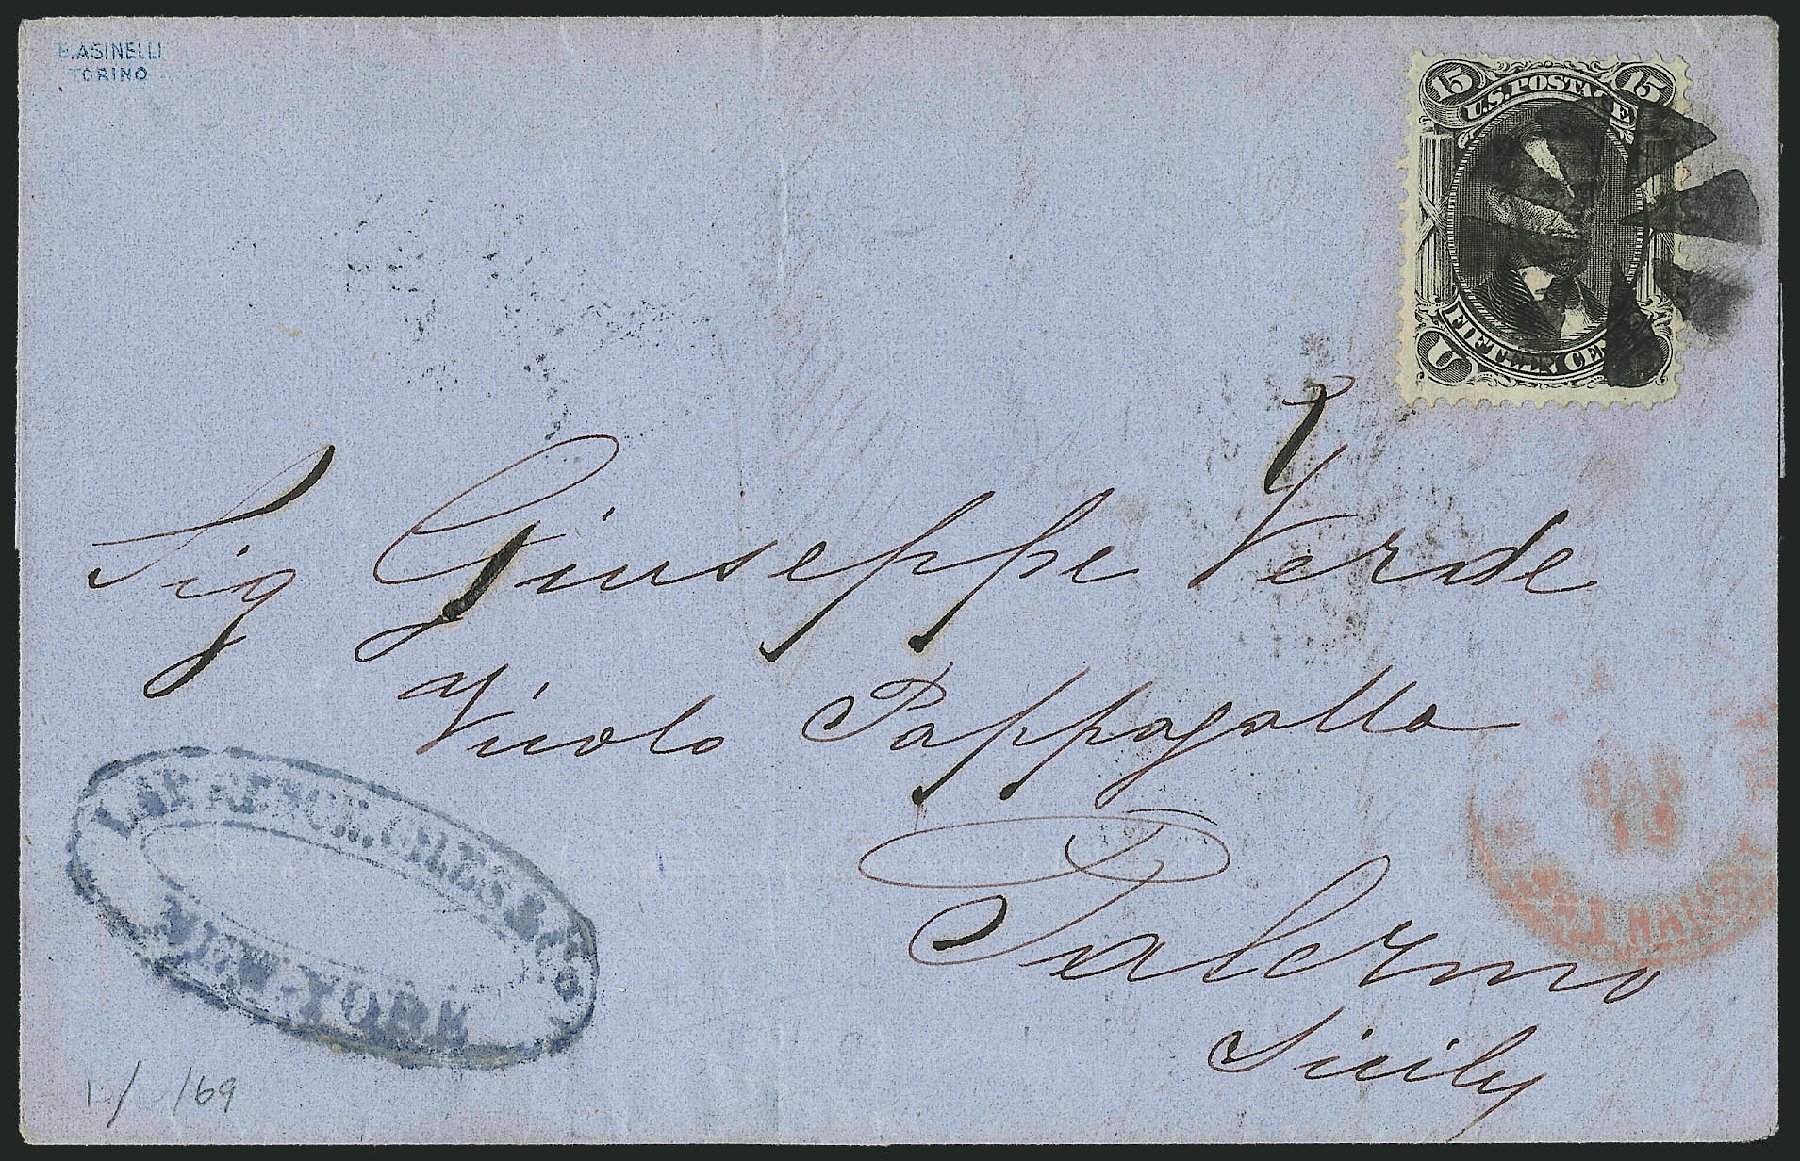 E. ASINELLI
TORINO
15 15
U.S. POSTAGE
FIFTEEN CENTS
U
Sig Giuseppe Verde
Vicolo Pappagallo
Palermo
Sicily
LAWRENCE, GILES & CO
NEW-YORK
JAN
19
/69